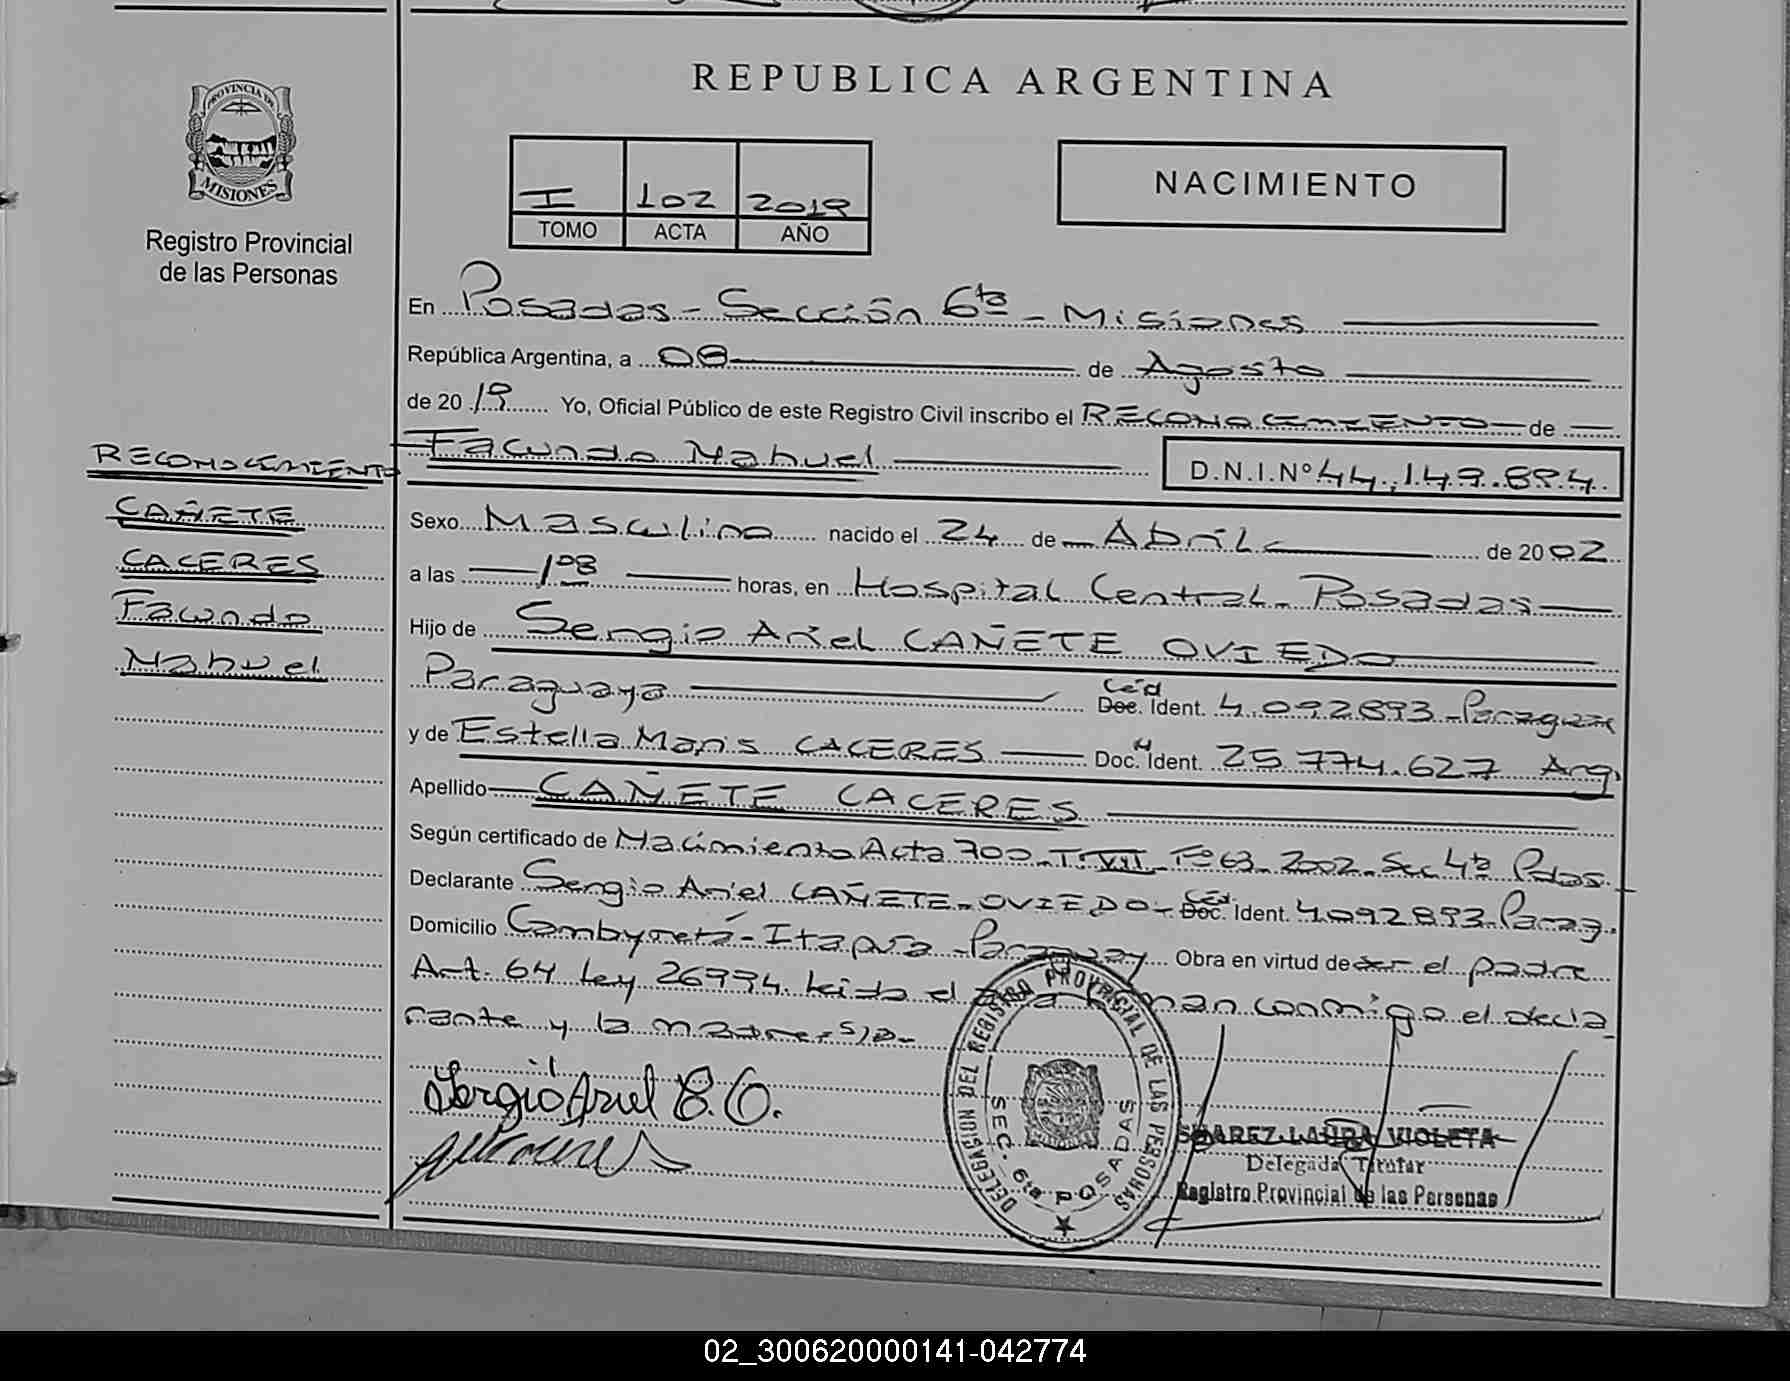 REPUBLICA ARGENTINA
PROVINCIA DE MISIONES
Registro Provincial
de las Personas
I 102 2019
TOMO ACTA AÑO
NACIMIENTO
En Posadas - Sección 6ta - Misiones
República Argentina, a 08 de Agosto
de 2019 Yo, Oficial Público de este Registro Civil inscribo el RECONOCIMIENTO de
Facundo Nahuel D.N.I.Nº 44.149.894.
RECONOCIMIENTO
CAÑETE
CACERES
Facundo
Nahuel
Sexo Masculino nacido el 24 de Abril de 2002
a las 1:08 horas, en Hospital Central - Posadas
Hijo de Sergio Ariel CAÑETE OVIEDO
Paraguaya Céd Doc. Ident. 4.092893 - Paraguay
y de Estella Maris CACERES Doc. N Ident. 25.774.627 Arg.
Apellido CAÑETE CACERES
Según certificado de Nacimiento Acta 700 - T. VII - Fº 63 - 2002 - Sec 4ta Pdas.
Declarante Sergio Ariel CAÑETE - OVIEDO - Céd Doc. Ident. 4.092893 - Parag.
Domicilio Cambyretá - Itapúa - Paraguay Obra en virtud de ser el padre
Art. 64 Ley 26994. Leida el acta firman conmigo el decla
rante y la madre.
Sergio Ariel C.O.
DELEGACION DEL REGISTRO PROVINCIAL DE LAS PERSONAS
SEC. 6ta POSADAS
SUAREZ LAURA VIOLETA
Delegada Titular
Registro Provincial de las Personas
02_300620000141-042774